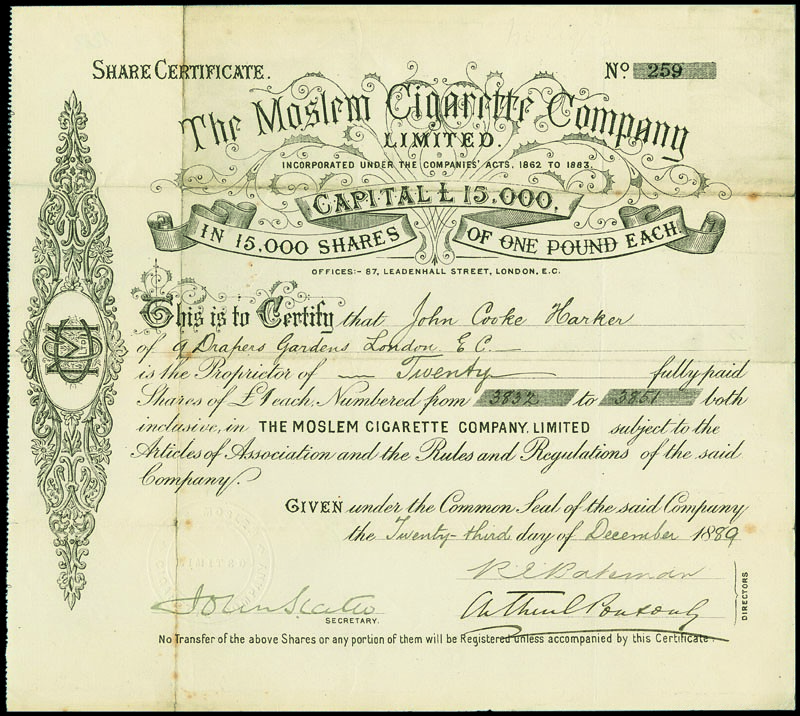 SHARE CERTIFICATE.
No 259
The Moslem Cigarette Company
LIMITED.
INCORPORATED UNDER THE COMPANIES' ACTS, 1862 TO 1883,
CAPITAL £15.000.
IN 15.000 SHARES OF ONE POUND EACH
OFFICES:- 87, LEADENHALL STREET, LONDON, E.C.
This is to Certify that John Cooke Harker
of 9 Drapers Gardens London E.C.
is the Proprietor of Twenty fully paid
Shares of £1 each, Numbered from 3832 to 3851 both
inclusive, in THE MOSLEM CIGARETTE COMPANY, LIMITED subject to the
Articles of Association and the Rules and Regulations of the said
Company.
GIVEN under the Common Seal of the said Company
the Twenty-third day of December 1889
DIRECTORS
SECRETARY.
No Transfer of the above Shares or any portion of them will be Registered unless accompanied by this Certificate.